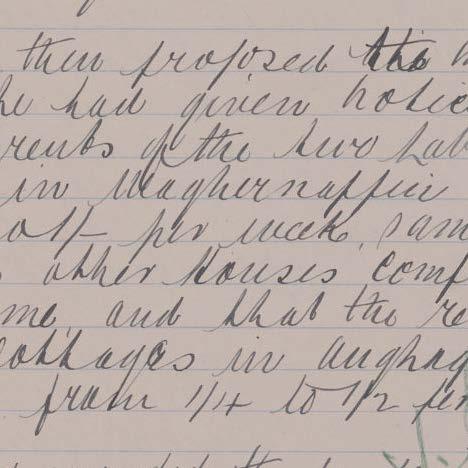 then proposed the
he had given notic
rents of the two Lab
in Maghernaffin
per week, sam
other Houses comf
me, and that the re
cottages in aughag
from 1/4 to 1/2 per